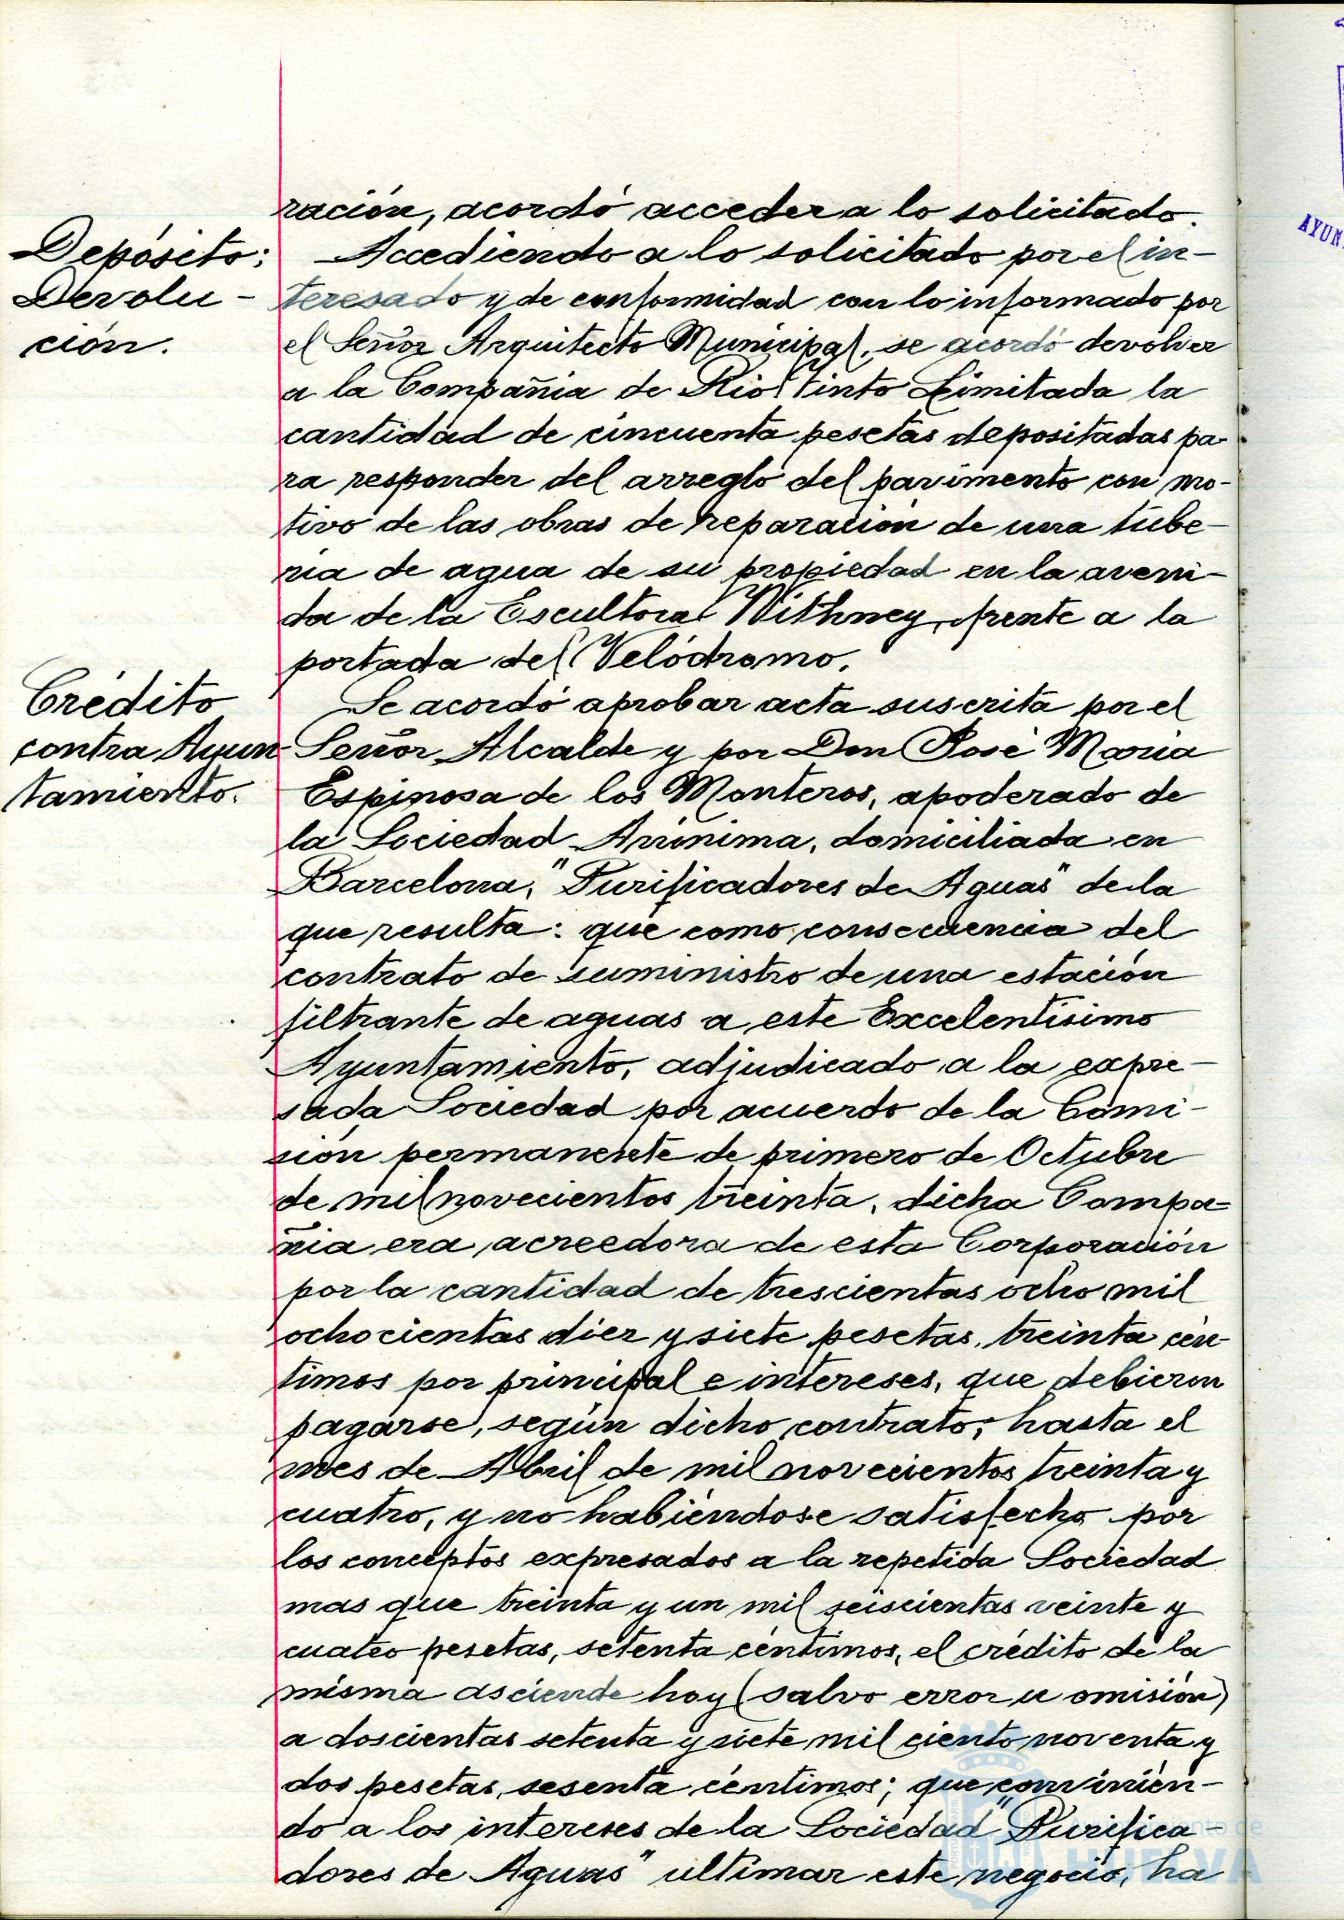 ración, acordó acceder a lo solicitado.
Depósito:
Devolu-
ción.
Accediendo a lo solicitado por el in-
teresado y de conformidad con lo informado por
el Señor Arquitecto Municipal, se acordó devolver
a la Compañia de Rio Tinto Limitada la
cantidad de cincuenta pesetas depositadas pa-
ra responder del arreglo del pavimento con mo-
tivo de las obras de reparación de una tube-
ria de agua de su propiedad en la aveni-
da de la Escultora Withney, frente a la
portada del Velódromo.
Crédito
contra Ayun-
tamiento.
Se acordó aprobar acta suscrita por el
Señor Alcalde y por Don José Maria
Espinosa de los Monteros, apoderado de
la Sociedad Anónima, domiciliada en
Barcelona, "Purificadores de Aguas" de la
que resulta: que como consecuencia del
contrato de suministro de una estación
filtrante de aguas a este Excelentísimo
Ayuntamiento, adjudicado a la expre-
sada Sociedad por acuerdo de la Comi-
sión permanente de primero de Octubre
de mil novecientos treinta, dicha Compa-
ñia era acreedora de esta Corporación
por la cantidad de trescientas ocho mil
ochocientas diez y siete pesetas, treinta cén-
timos por principal e intereses, que debieron
pagarse, según dicho contrato, hasta el
mes de Abril de mil novecientos treinta y
cuatro, y no habiéndose satisfecho por
los conceptos expresados a la repetida Sociedad
mas que treinta y un mil seiscientas veinte y
cuatro pesetas, setenta céntimos, el crédito de la
misma asciende hoy (salvo error u omisión)
a doscientas setenta y siete mil ciento noventa y
dos pesetas, sesenta céntimos; que convinién-
do a los intereses de la Sociedad "Purifica
dores de Aguas" ultimar este negocio, ha
HUELVA